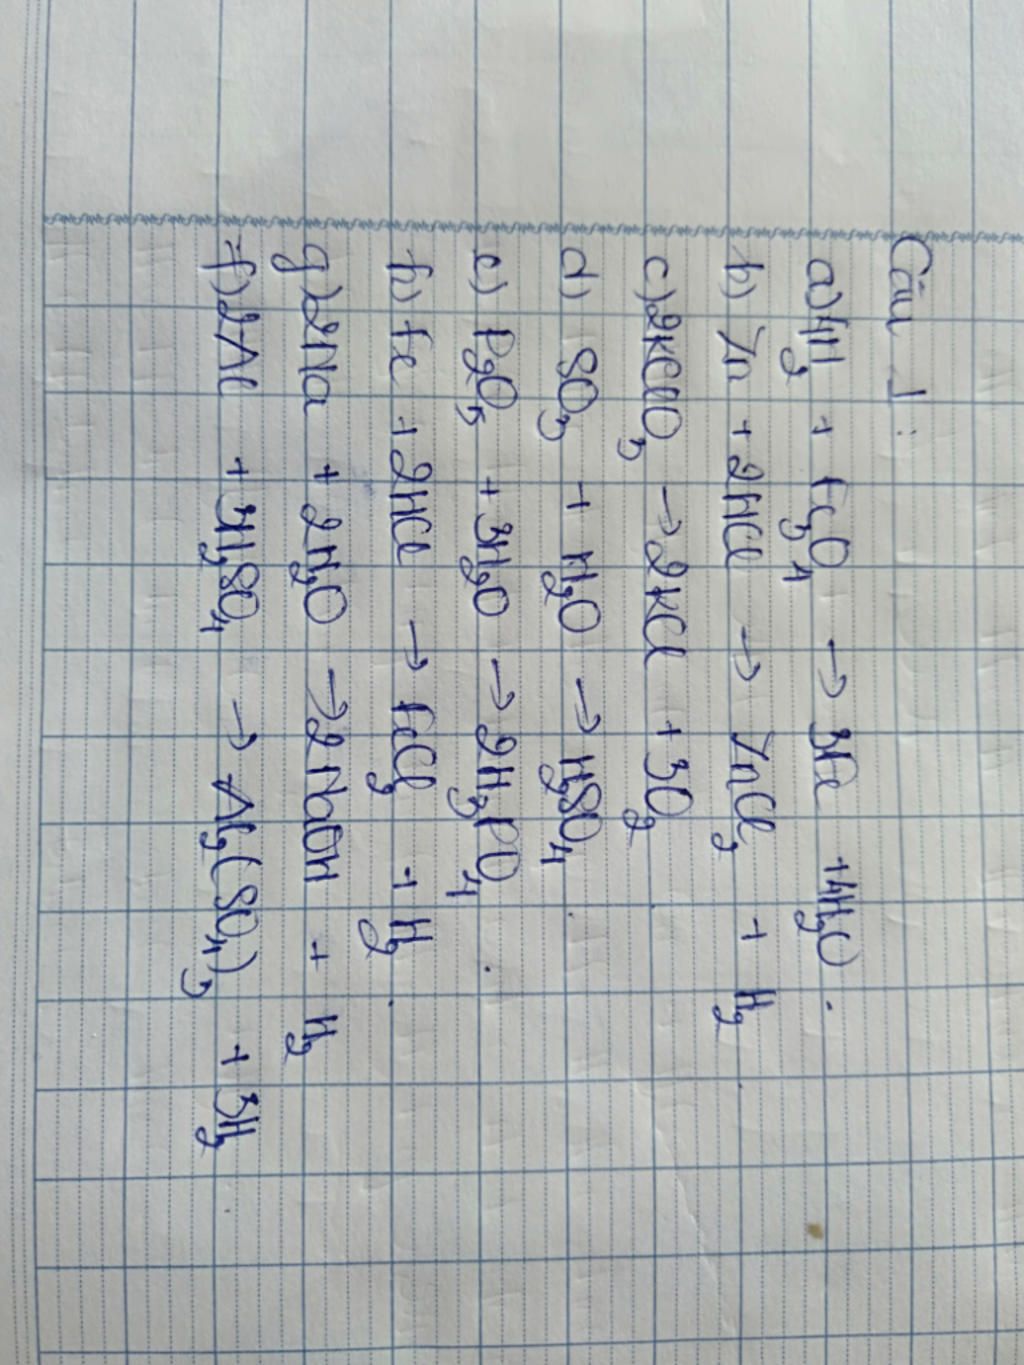 Câu 1:
a) 4H₂ + Fe₃O₄ → 3Fe + 4H₂O.
b) Zn + 2HCl → ZnCl₂ + H₂
c) 2KClO₃ → 2KCl + 3O₂
d) SO₃ + H₂O → H₂SO₄.
e) P₂O₅ + 3H₂O → 2H₃PO₄.
h) Fe + 2HCl → FeCl₂ + H₂.
g) 2Na + 2H₂O → 2NaOH + H₂
f) 2Al + 3H₂SO₄ → Al₂(SO₄)₃ + 3H₂